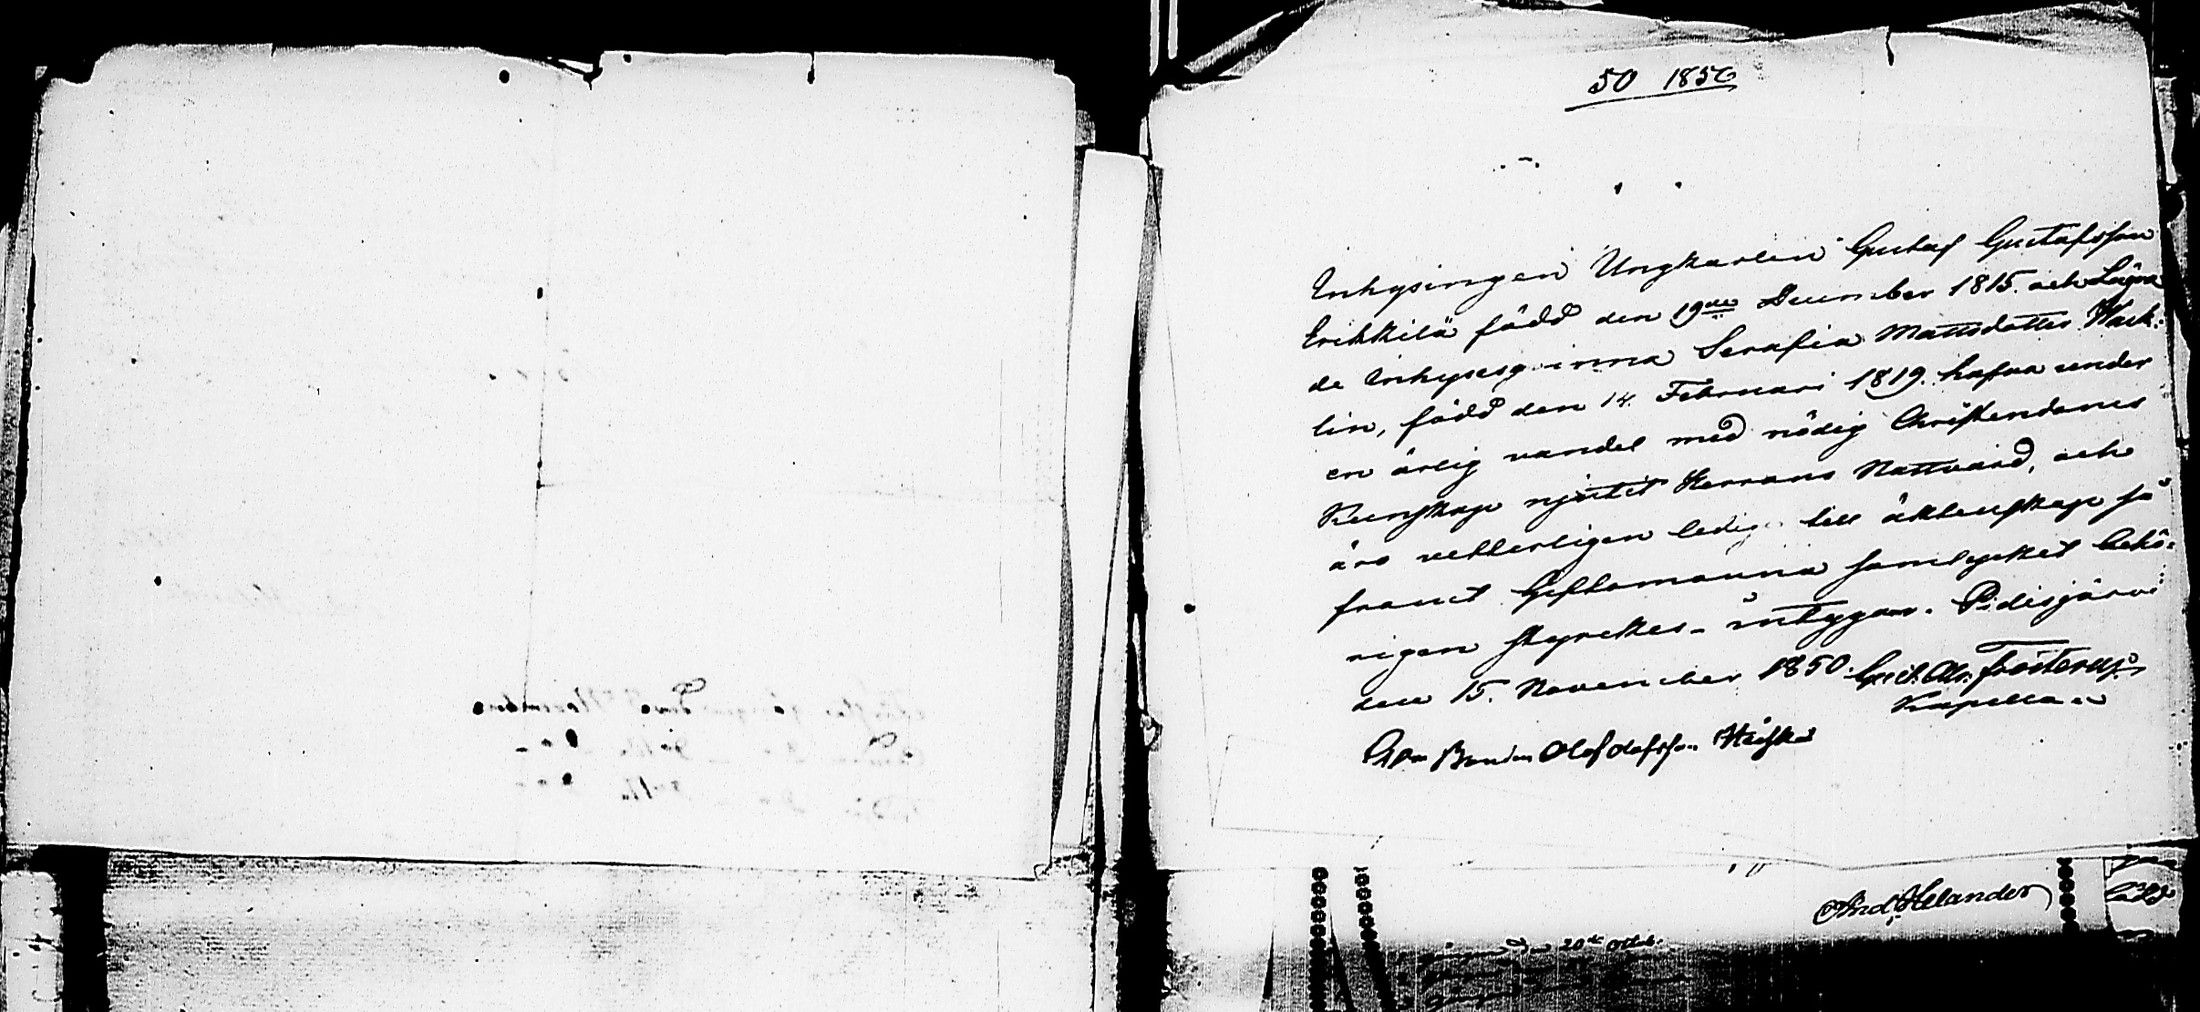 50 1850
Inhysingen Ungkarlen Gustaf Gustafsson
Erikkilä född den 19de December 1815. och Lägra
de Inhysesqvinna Serafia Mattsdotter Wack-
lin, född den 14. Februari 1819. hafva under
en ärlig vandel med nödig Christendoms
Kunskap njutit Herrans Nattvard, och
äro vetterligen lediga till äktenskap så
framt Giftomanna samtycket behö-
rigen styrckes - intygar. Pidisjärvi
den 15. November 1850. Gust. Ab. Frosterus
Kapellan
Bonden Olof Olofsson
And. Helander
den 20de Octob.